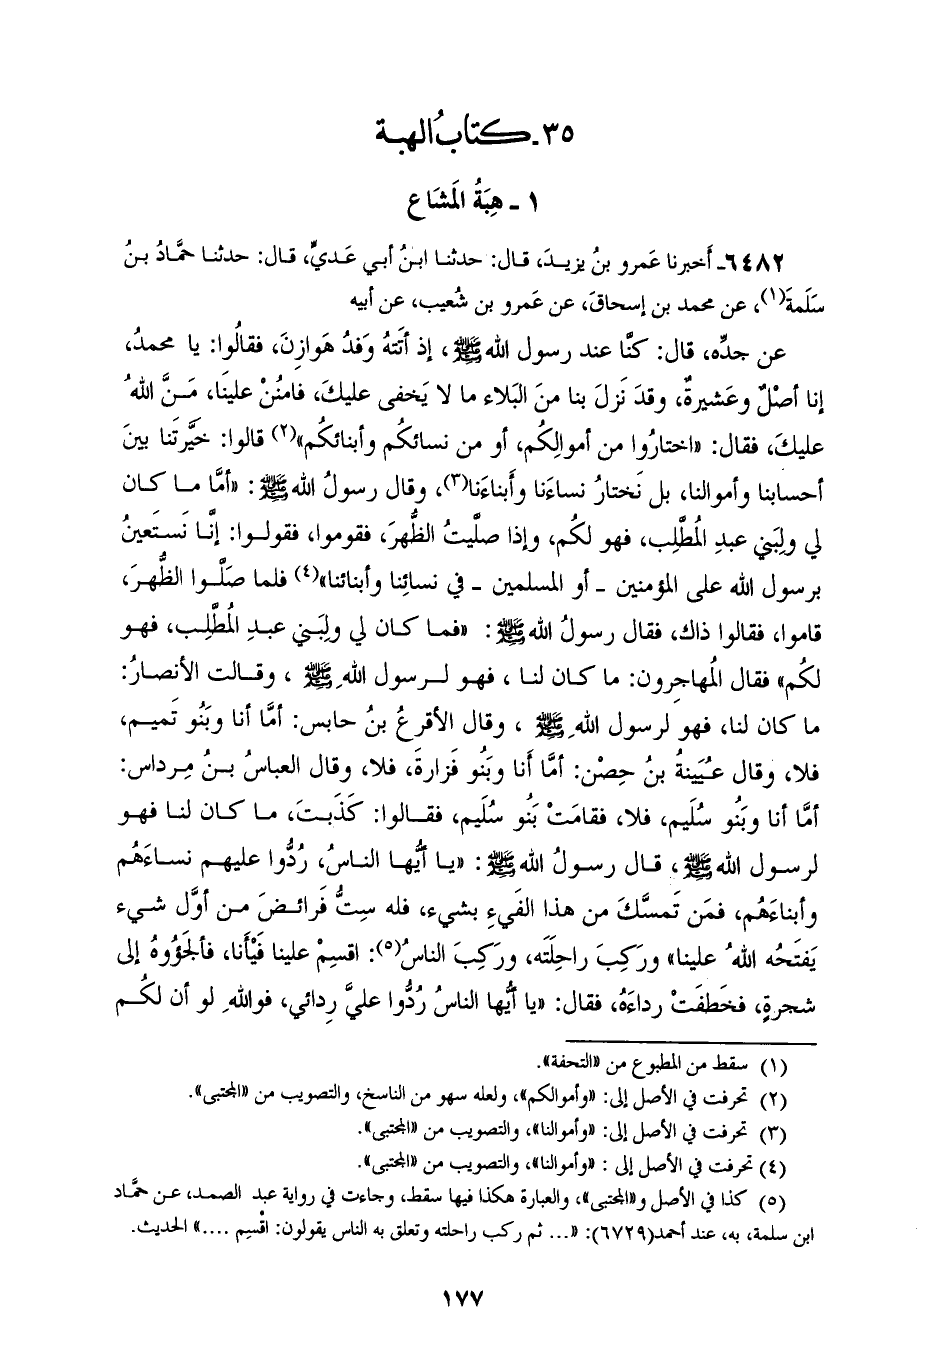 ٣٥ـ كتابُ الهبة
١ ـ هِبَةُ المَشَاع
٦٤٨٢ـ أَخبرنا عَمرو بنُ يزيدَ، قال: حدثنا ابنُ أبي عَديٍّ، قال: حدثنا حَمَّادُ بنُ
سَلَمةَ(١)، عن محمد بن إسحاقَ، عن عَمرو بن شُعيب، عن أبيه
عن جدِّه، قال: كنَّا عند رسول الله ﷺ، إذ أَتَتهُ وَفدُ هَوازِنَ، فقالُوا: يا محمدُ،
إنا أصْلٌ وعَشيرةٌ، وقدَ نَزلَ بنا منَ البَلاء ما لا يَخفى عليكَ، فامنُنْ علينَا، مَنَّ اللهُ
عليكَ، فقال: «اختارُوا من أموالِكُم، أو من نسائكُم وأبنائكُم»(٢) قالوا: خيَّرتَنا بينَ
أحسابنا وأموالنا، بل نَختارُ نساءَنا وأَبناءَنا(٣)، وقال رسولُ الله ﷺ: «أمَّا ما كان
لي ولِبَني عبدِ المُطَّلِب، فهو لكُم، وإذا صلَّيتُ الظُّهرَ، فقوموا، فقولوا: إنَّا نَستَعينُ
برسول الله على المؤمنين ـ أو المسلمين ـ في نسائِنا وأبنائنا»(٤) فلما صَلَّوا الظُّهرَ،
قاموا، فقالوا ذاك، فقال رسولُ الله ﷺ: «فما كان لي ولِبَني عبدِ المُطَّلِب، فهو
لكُم» فقال المُهاجِرون: ما كان لنا، فهو لرسول اللهِ ﷺ، وقالت الأنصارُ:
ما كان لنا، فهو لرسول اللهِ ﷺ، وقال الأقرعُ بنُ حابس: أمَّا أنا وبَنُو تَميم،
فلا، وقال عُيَينةُ بنُ حِصْن: أمَّا أَنا وبَنُو فَزارةَ، فلا، وقال العباسُ بنُ مِرداس:
أمَّا أنا وبَنُو سُلَيم، فلا، فقامَتْ بَنُو سُلَيم، فقالوا: كَذَبتَ، ما كان لنا فهو
لرسول الله ﷺ، قال رسولُ الله ﷺ: «يا أيُّها الناسُ، رُدُّوا عليهم نساءَهُم
وأبناءَهُم، فمَن تَمسَّكَ من هذا الفَيءِ بشيء، فله ستُّ فَرائضَ من أوَّل شيء
يَفتَحُه اللهُ علينا» ورَكِبَ راحِلَتَه، ورَكِبَ الناسُ(٥): اقسِمْ علينا فَيْأَنا، فأَلجَؤُوهُ إلى
شجرةٍ، فخَطَفَتْ رداءَهُ، فقال: «يا أيُّها الناسُ رُدُّوا عليَّ رِدائي، فواللهِ لو أن لكُم
(١) سقط من المطبوع من «التحفة».
(٢) تحرفت في الأصل إلى: «وأموالكم»، ولعله سهو من الناسخ، والتصويب من «المجتبى».
(٣) تحرفت في الأصل إلى: «وأموالنا»، والتصويب من «المجتبى».
(٤) تحرفت في الأصل إلى : «وأموالنا»، والتصويب من «المجتبى».
(٥) كذا في الأصل و«المجتبى»، والعبارة هكذا فيها سقط، وجاءت في رواية عبد الصمد، عن حمَّاد
ابن سلمة، به، عند أحمد(٦٧٢٩): «... ثم ركب راحلته وتعلق به الناس يقولون: اقْسِم ....» الحديث.
١٧٧